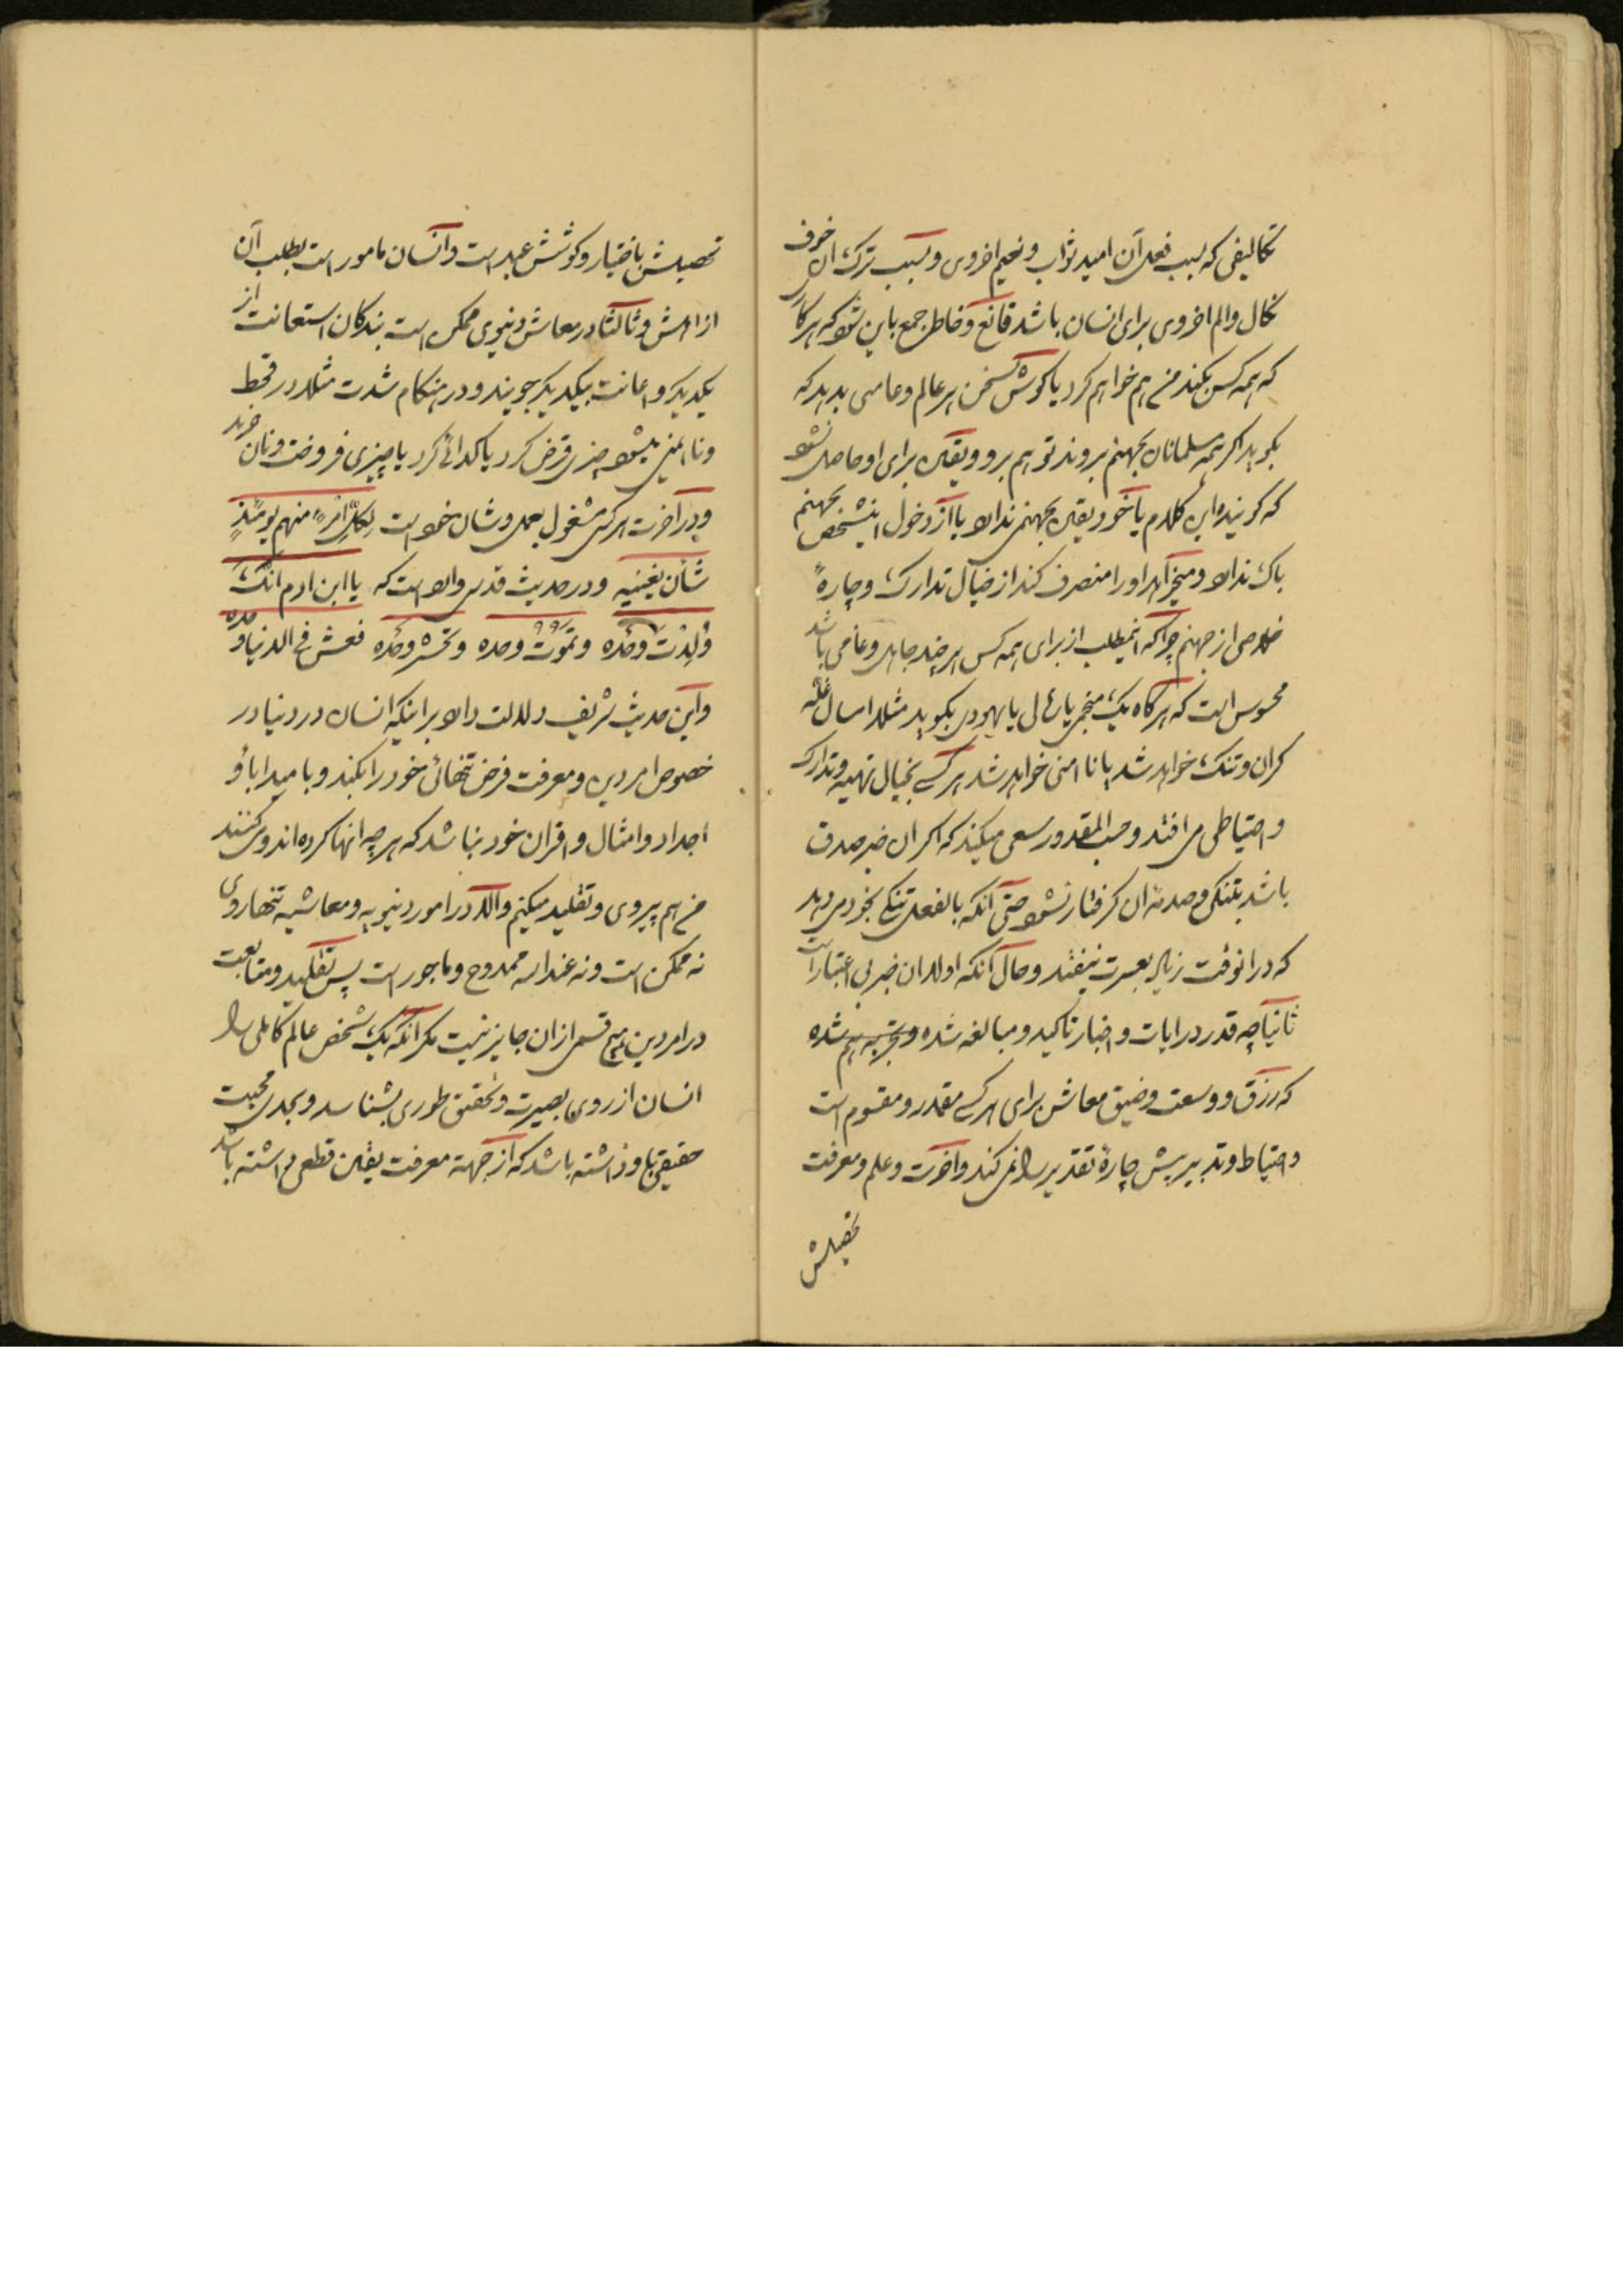 تکالیفی که بسبب فعل آن امید ثواب و نعیم اخروی و بسبب ترک ان خوف
نکال و الم اخروی برای انسان باشد قانع و خاطر جمع باین شود که هر کاری
که همه کس بکند من هم خواهم کرد یا گوش بسخن هر عالم و عامی بدهد که
بگوید اگر همه مسلمانان بجهنم بروند تو هم برو و یقین برای او حاصل نشود
که گوینده این کلام یا خود یقین بجهنم ندارد یا از دخول اینشخص بجهنم
باک ندارد و میخواهد او را منصرف کند از خیال تدارک و چارهٔ
خلاص از جهنم چرا که اینمطلب از برای همه کس هر چند جاهل و عامی باشد
محسوس است که هر گاه یک منجمی یا رمال یا یهودی بگوید مثلا امسال غله
کران و تنک خواهد شد یا نا امنی خواهد شد هر کسی بخیال تهیه و تدارک
و احتیاطی می افتد و حسب المقدور سعی میکند که اکر ان خبر صدق
باشد بتنکی و صدمهٔ ان کرفتار نشود حتی آنکه بالفعل تنکی بخود میدهد
که در انوقت زیاد بعسرت نیفتد و حال آنکه اولا ان خبر بی اعتبار است
ثانیا چه قدر در ایات و اخبار تاکید و مبالغه شده و تجربه هم شده
که رزق و وسعت و ضیق معاش برای هر کسی مقدر و مقسوم است
و احتیاط و تدبیر بیش چارهٔ تقدیر را نمی کند و آخرت و علم و معرفت
تحصیلش
تحصیلش باختیار و کوشش عبد است و انسان مامور است بطلب آن
از امرش و ثالثا در معاش دنیوی ممکن است بندکان استعانت از
یکدیکر و اعانت بیکدیکر جویند و در هنکام شدت مثلا در قحط
و نا امنی میشود چیزی قرض کرد یا کدائی کرد یا چیزی فروخت و نان خرید
و در آخرت هر کس مشغول بعمل و شان خود است لِکلِّ امْرِءٍ منهم یومئذٍ
شأن یغنیه و در حدیث قدسی وارد است که یا ابن ادم انّکَ
وُلِدْتَ وَحْدَه و تَموُت وحده و تحشر وَحْدَه فعش فی الدنیا وحده
و این حدیث شریف دلالت دارد بر اینکه انسان در دنیا در
خصوص امر دین و معرفت فرض تنهائی خود را بکند و بامید اباؤ
اجداد و امثال و اقران خود نباشد که هر چه انها کرده اند و می کنند
من هم پیروی و تقلید میکنم و الّا در امور دنیویه و معاشیه تنها روی
نه ممکن است و نه عند الله ممدوح و ماجور است پس تقلید و متابعت
در امر دین هیچ قسمی از ان جایز نیست مکر آنکه یک شخص عالم کاملی را
انسان از روی بصیرت و تحقیق طوری بشناسد و بحدی محبت
حقیقی باو داشته باشد که از جهة معرفت یقین قطعی داشته باشد